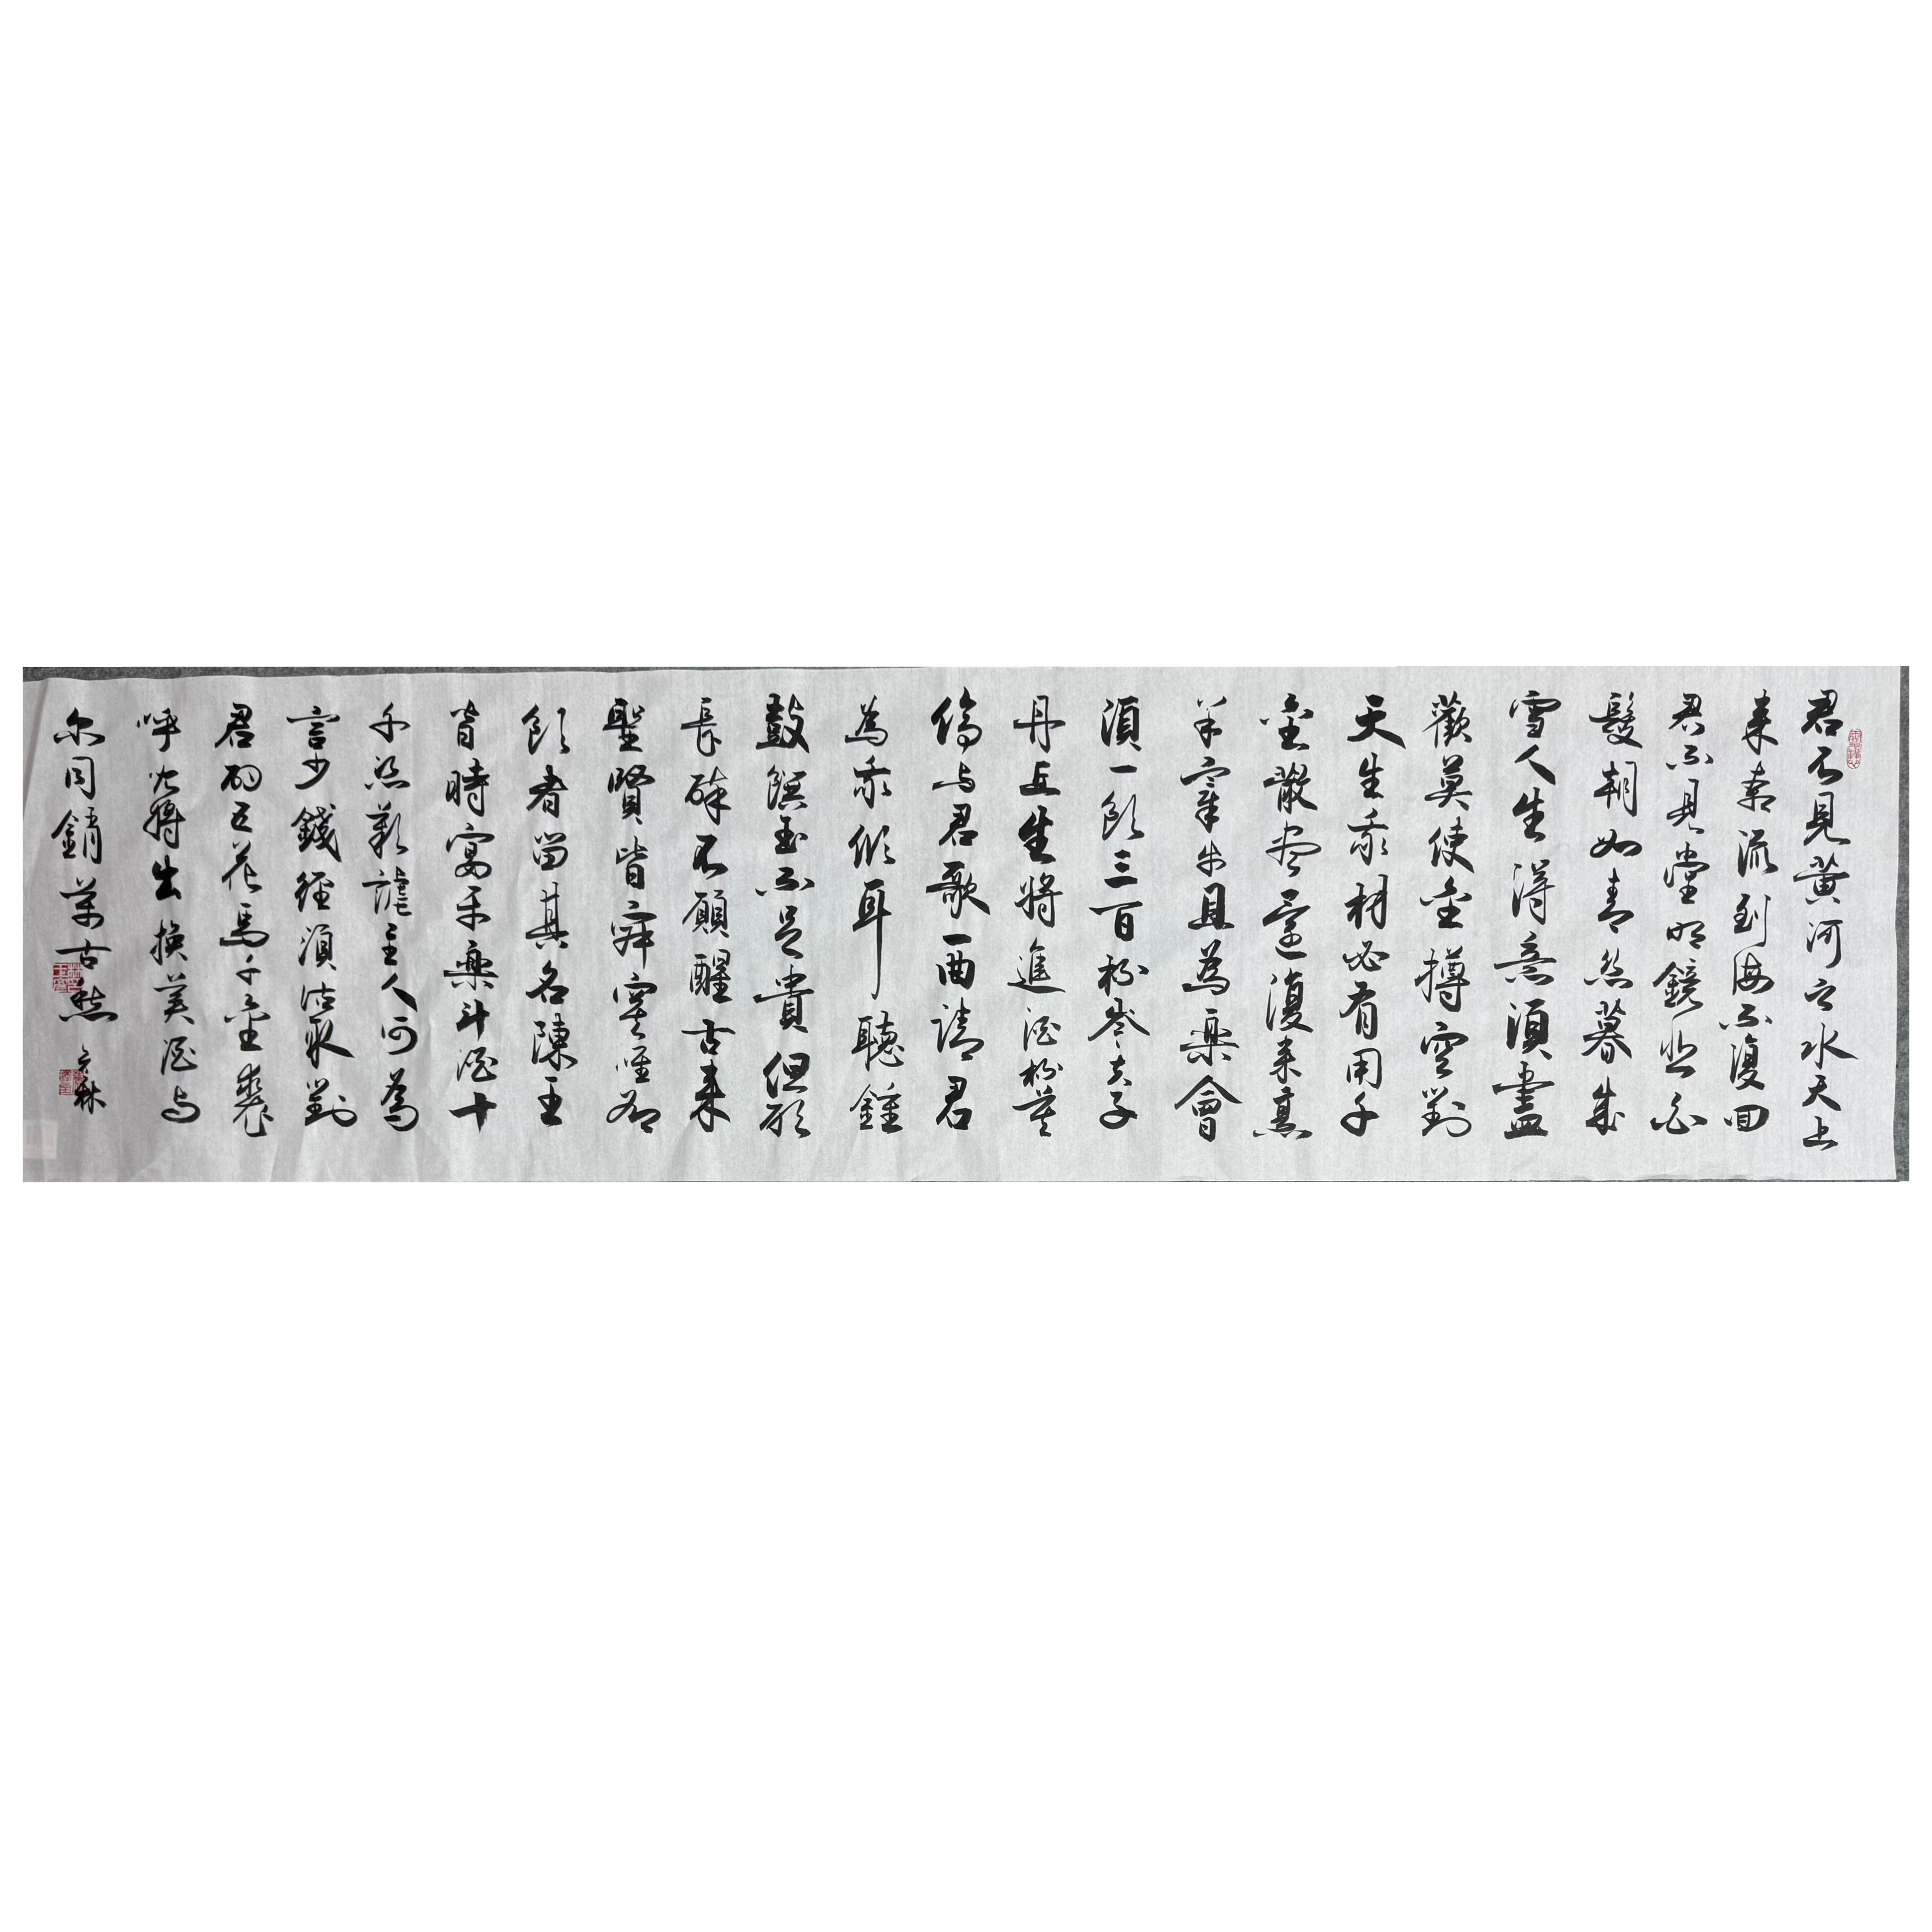 君不見黃河之水天上
來奔流到海不復回
君不見高堂明鏡悲白
髮朝如青絲暮成
雪人生得意須盡
歡莫使金樽空對
天生我材必有用千
金散盡還復來烹
羊宰牛且為樂會
須一飲三百杯岑夫子
丹丘生將進酒杯莫
停与君歌一曲請君
為我傾耳聽鐘
鼓饌玉不足貴但願
長醉不願醒古來
聖賢皆寂寞唯有
飲者留其名陳王
昔時宴平樂斗酒十
千恣歡謔主人何為
言少錢徑須沽取對
君酌五花馬千金裘
呼兒將出換美酒与
尔同銷萬古愁